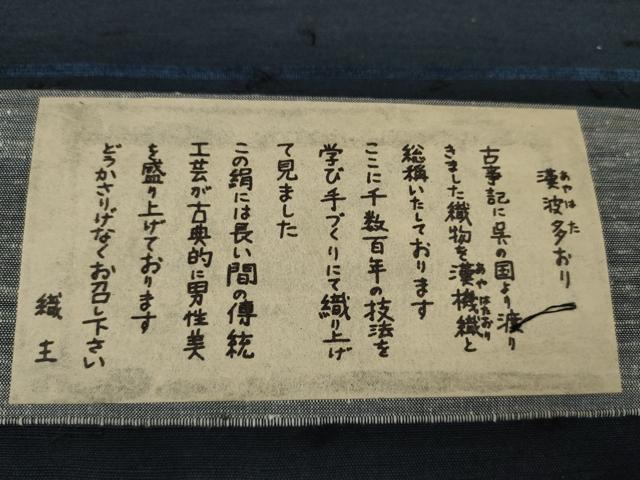 漢波多おり
あやはた
古事記に呉の国より渡り
きました織物を漢機織と
あやはたおり
総稱いたしております
ここに千数百年の技法を
学び手づくりにて織り上げ
て見ました
この絹には長い間の傳統
工芸が古典的に男性美
を盛り上げております
どうかさりげなくお召し下さい
織主